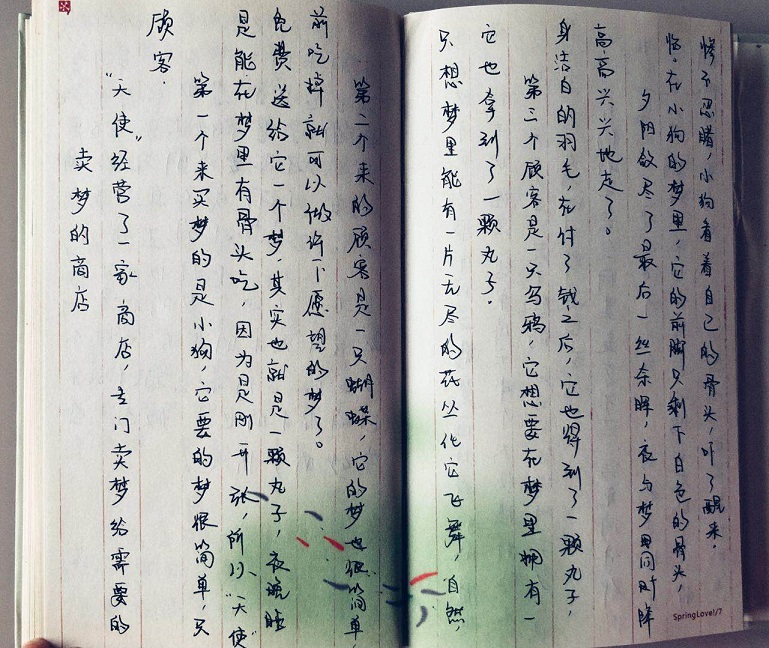 卖梦的商店
“天使”经营了一家商店，专门卖梦给需要的
顾客.
第一个来买梦的是小狗，它要的梦很简单，只
是能在梦里有骨头吃，因为是刚开张，所以“天使”
免费送给它一个梦，其实也就是一颗丸子，夜晚睡
前吃掉就可以做许下愿望的梦了。
第二个来的顾客是一只蝴蝶，它的梦也很简单，
只想梦里能有一片无尽的花丛任它飞舞，自然，
它也拿到了一颗丸子.
第三个顾客是一只乌鸦，它想要在梦里拥有一
身洁白的羽毛，在付了钱之后，它也得到了一颗丸子，
高高兴兴地走了。
夕阳敛尽了最后一丝余晖，夜与梦同时降
临。在小狗的梦里，它的前脚只剩下白色的骨头，
惨不忍睹，小狗看着自己的骨头，吓了醒来.
SpringLove!/7